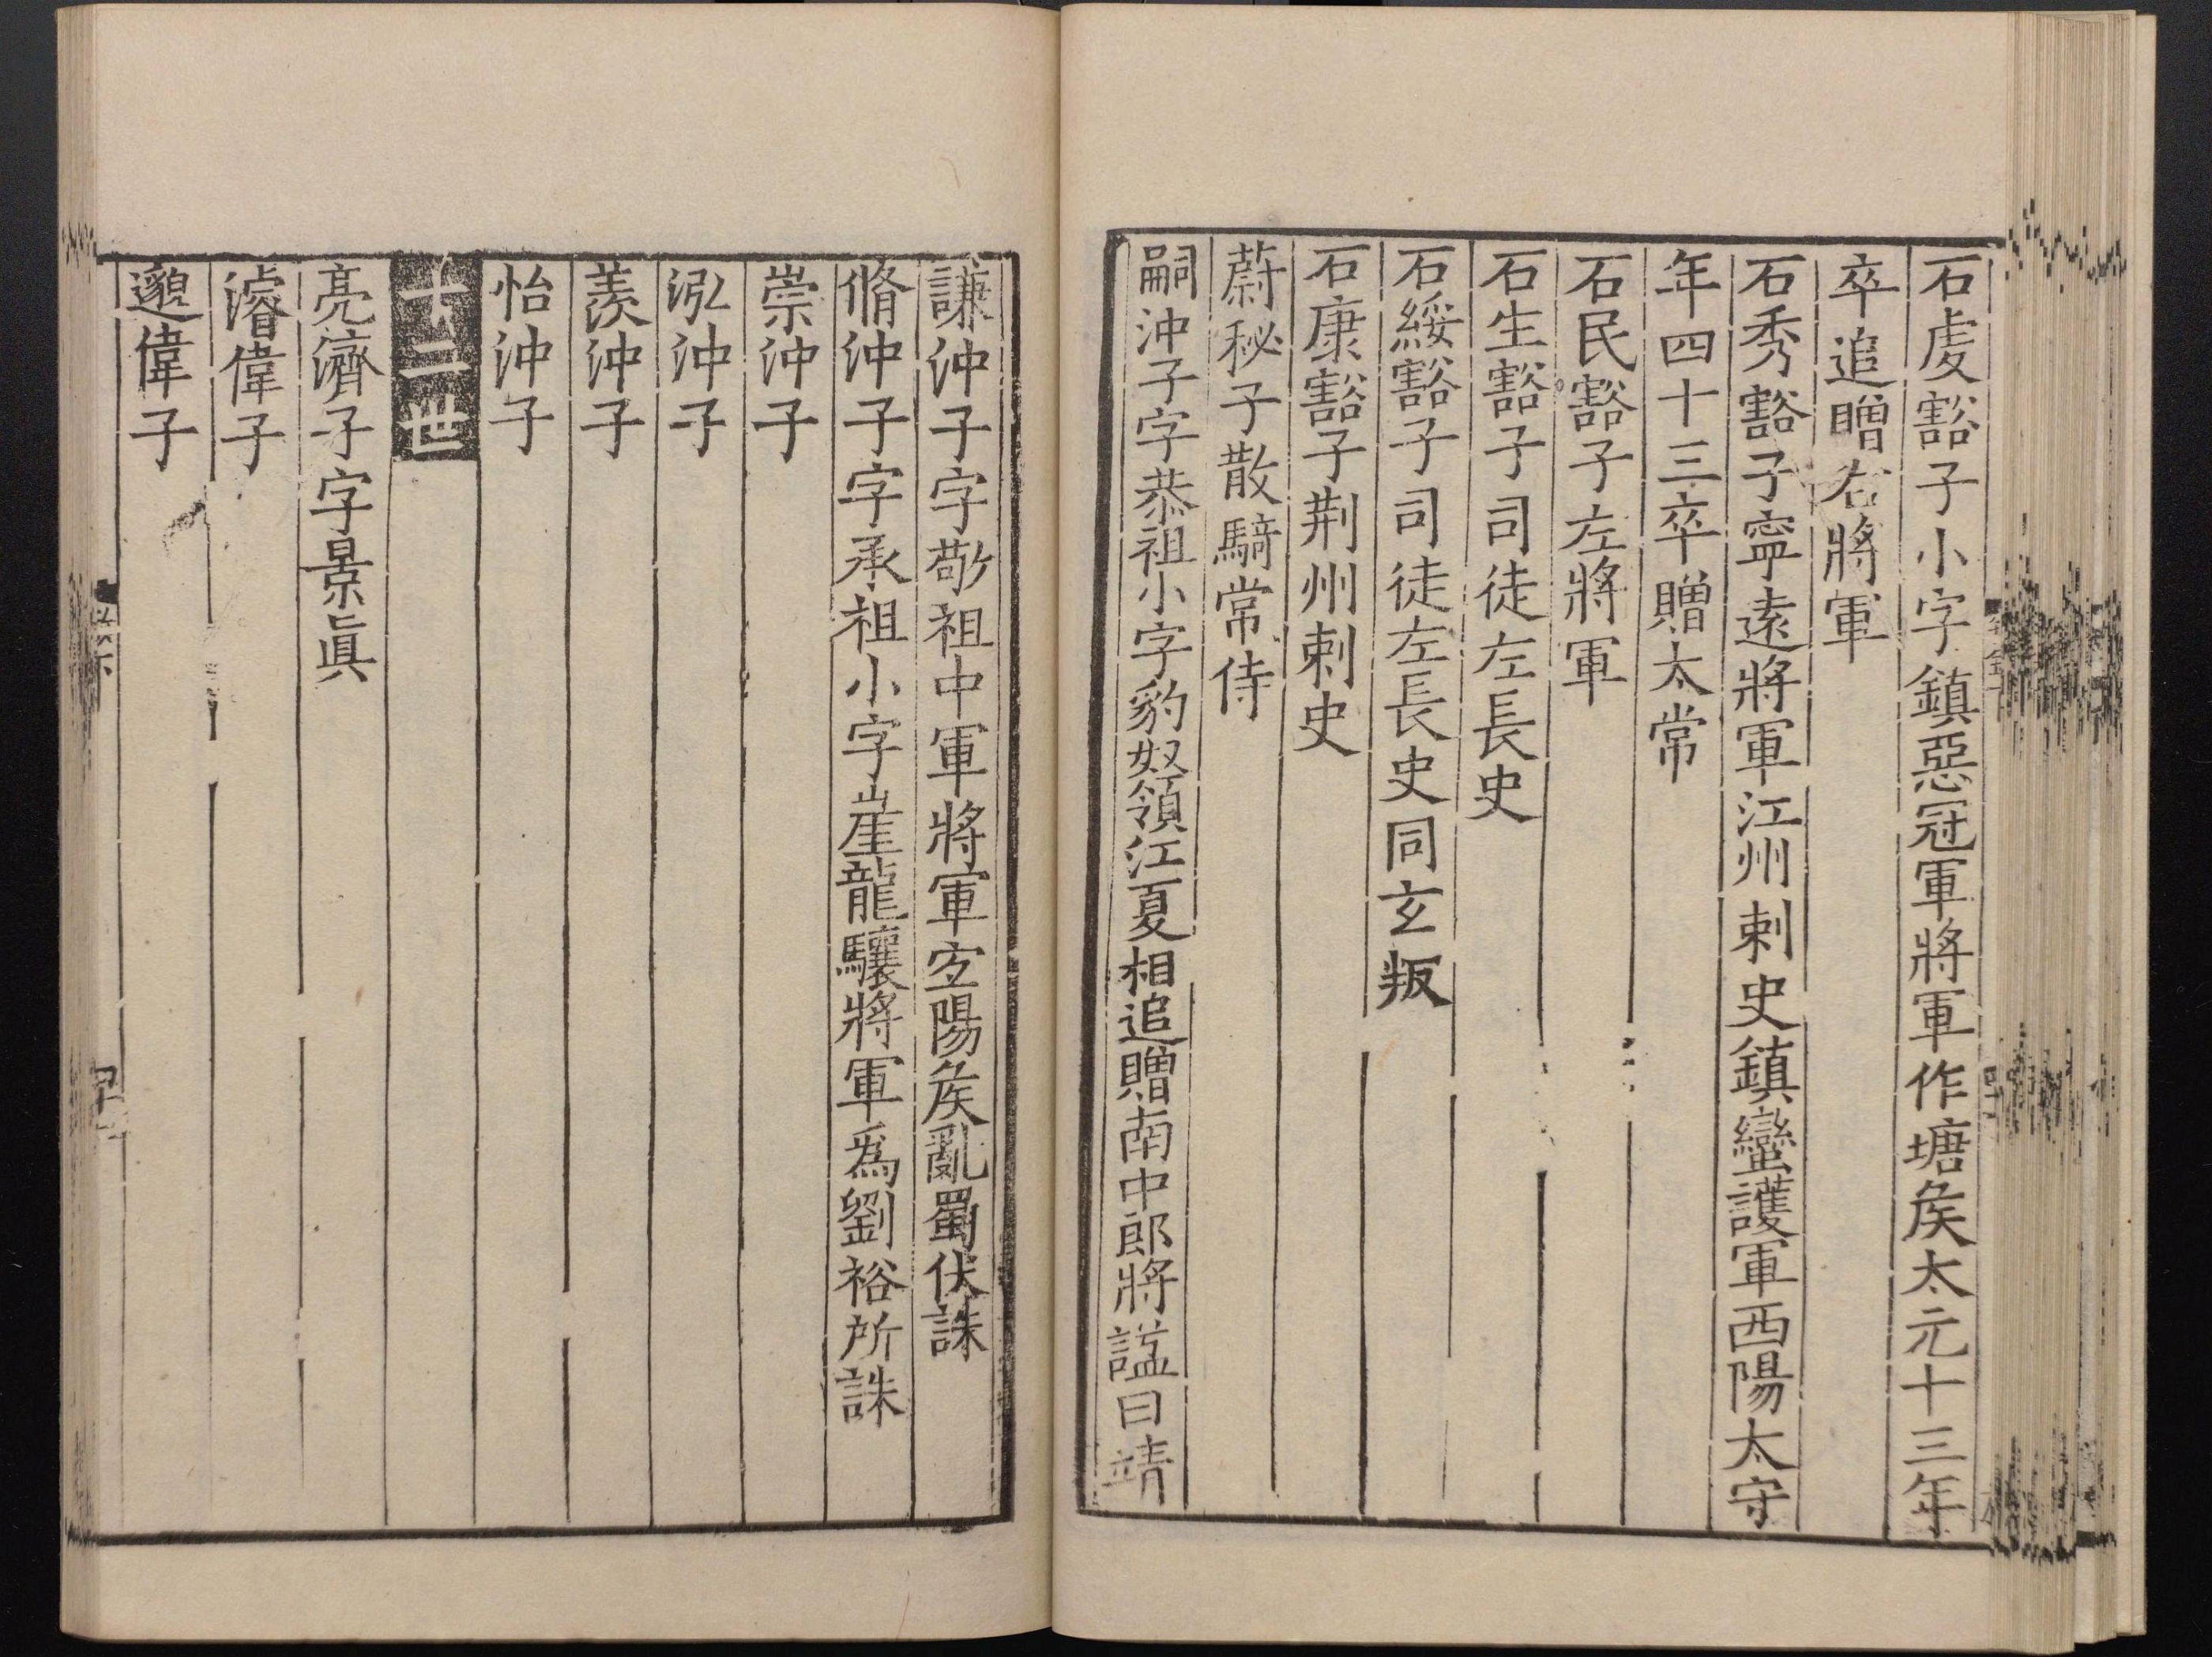 石虔豁子小字鎮惡冠軍將軍作塘矦太元十三年
卒追贈右將軍
石秀豁子寧遠將軍江州刺史鎮蠻護軍西陽太守
年四十三卒贈太常
石民豁子左將軍
石生豁子司徒左長史
石綏豁子司徒左長史同玄叛
石康豁子荆州刺史
蔚秘子散騎常侍
嗣沖子字恭祖小字豹奴領江夏相追贈南中郎將謚曰靖
謙沖子字敬祖中軍將軍宜陽矦亂蜀伏誅
脩沖子字承祖小字崖龍驤將軍爲劉裕所誅
崇沖子
泓沖子
羨沖子
怡沖子
十二世
亮濟子字景眞
濬偉子
邈偉子